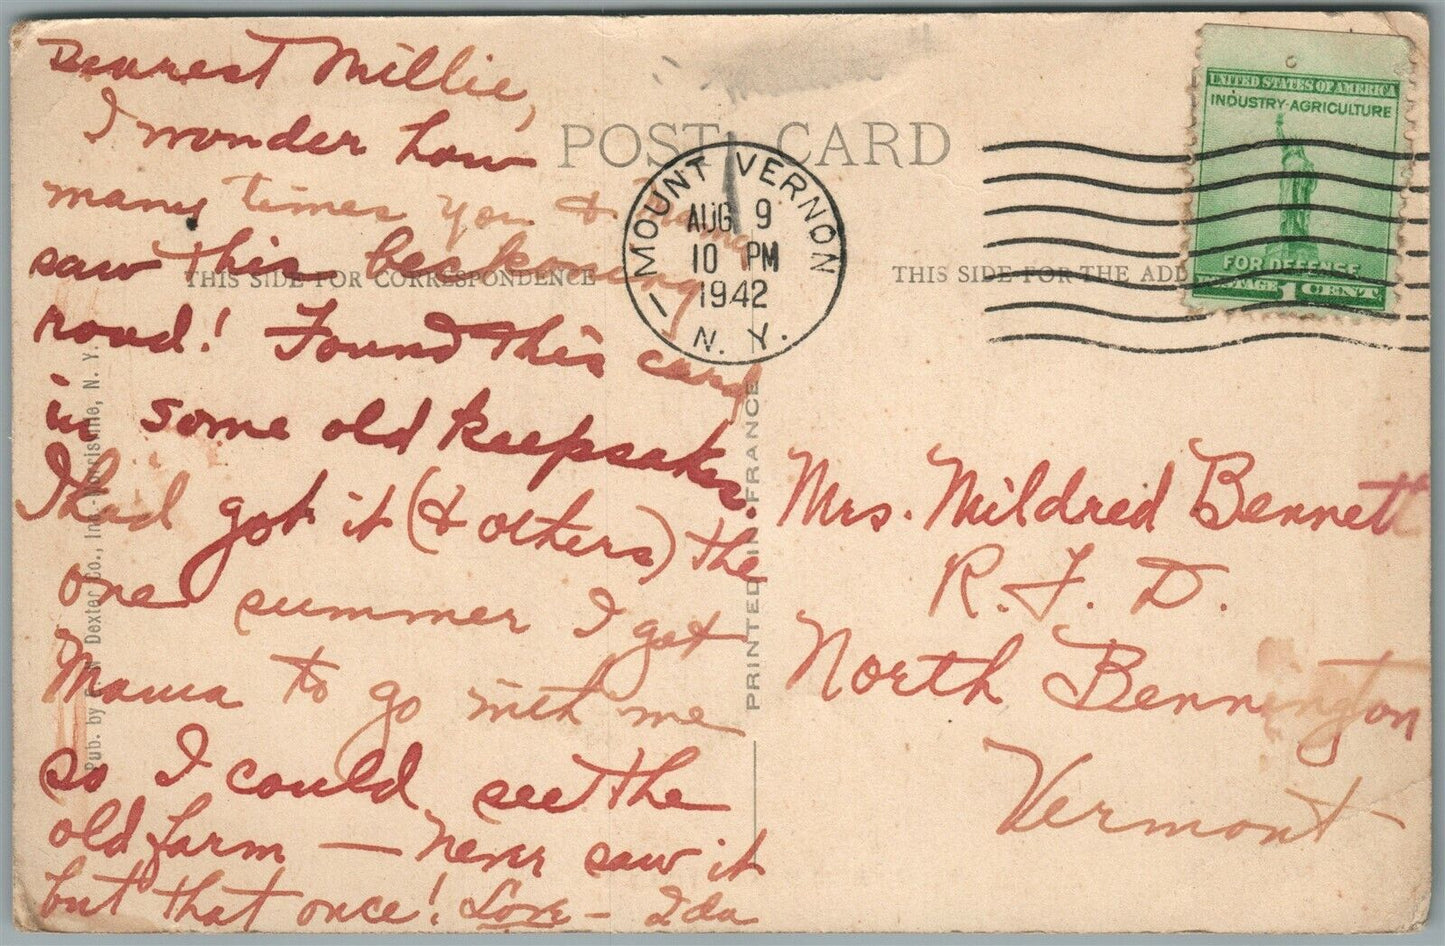 Dearest Millie,
I wonder how
many times you &
saw this beckoning
road! Found this card
in some old keepsakes.
I had got it (& others) the
one summer I got
Mama to go with me
so I could see the
old farm — never saw it
but that once! Love – Ida
POST CARD
THIS SIDE FOR CORRESPONDENCE
THIS SIDE FOR THE ADD
MOUNT VERNON
AUG 9
10 PM
1942
N. Y.
UNITED STATES OF AMERICA
INDUSTRY-AGRICULTURE
FOR DEFENSE
POSTAGE 1 CENT
Mrs. Mildred Bennett
R. F. D.
North Bennington
Vermont
Pub. by Dexter Co., Inc. N. Y.
PRINTED IN FRANCE